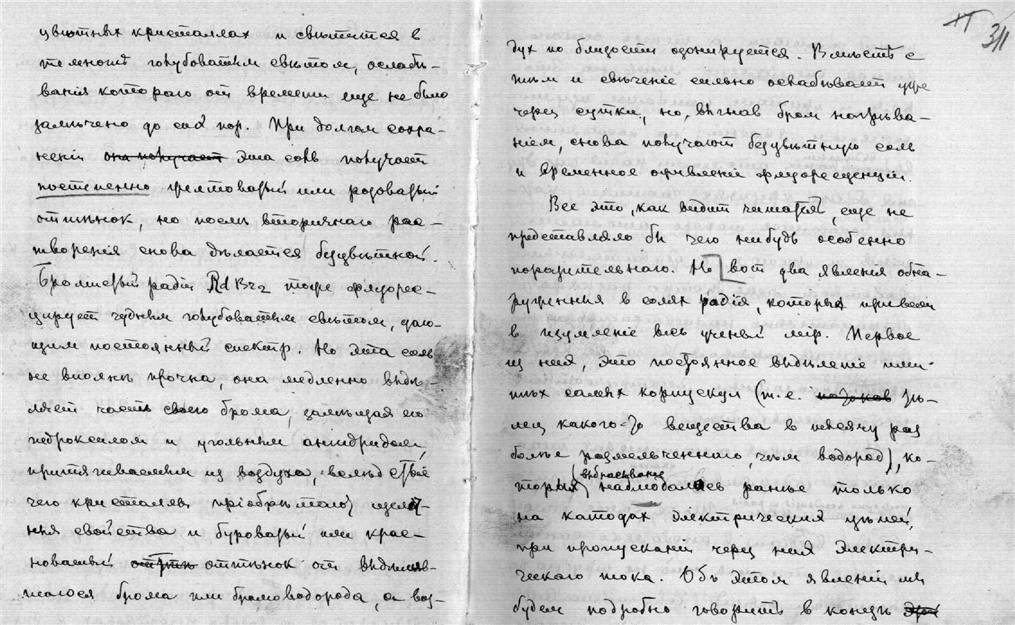 цвѣтныхъ кристаллах и свѣтится в
темнотѣ голубоватым свѣтом, ослабѣ-
ванія котораго от времени еще не было
замѣчено до сих пор. При долгом сохра-
неніи она получает эта соль получает
постепенно фіолетовый или розоватый
оттѣнок, но послѣ вторичнаго рас-
творенія снова дѣлается безцвѣтной.
Бромистый радій RdBr2 тоже флуорес-
цирует чудным голубоватым свѣтом, даю-
щим постоянный спектр. Но эта соль
не вполнѣ прочна, она медленно выдѣ-
ляет часть своего брома, замѣщая его
гидроксилом и угольным ангидридом,
притягиваемым из воздуха, вслѣдствіе
чего кристаллы пріобрѣтают щелоч-
ныя свойства и буроватый или крас-
новатый оттѣнок от выдѣлив-
шагося брома или бромоводорода, а воз-
311
дух по близости озонируется. Вмѣстѣ с
тѣм и свѣченіе сильно ослабѣвает уже
через сутки, но, выгнав бром нагрѣва-
ніем, снова получают безцвѣтную соль
и временное оживленіе флуоресценціи.
Все это, как видит читатель, еще не
представляло бы чего нибудь особенно
поразительнаго. Но вот два явленія обна-
руженныя в солях радія, которыя привели
в изумленіе весь ученый мір. Первое
из них, это постоянное выдѣленіе или-
тѣлец какого-то вещества в тысячу раз
болѣе размельченнаго, чѣм водород), ко-
выбрасываніе
торых наблюдалось раньше только
на катодах электрических цѣпей,
при пропусканіи через них электри-
ческаго тока. Об этом явленіи мы
будем подробно говорить в концѣ